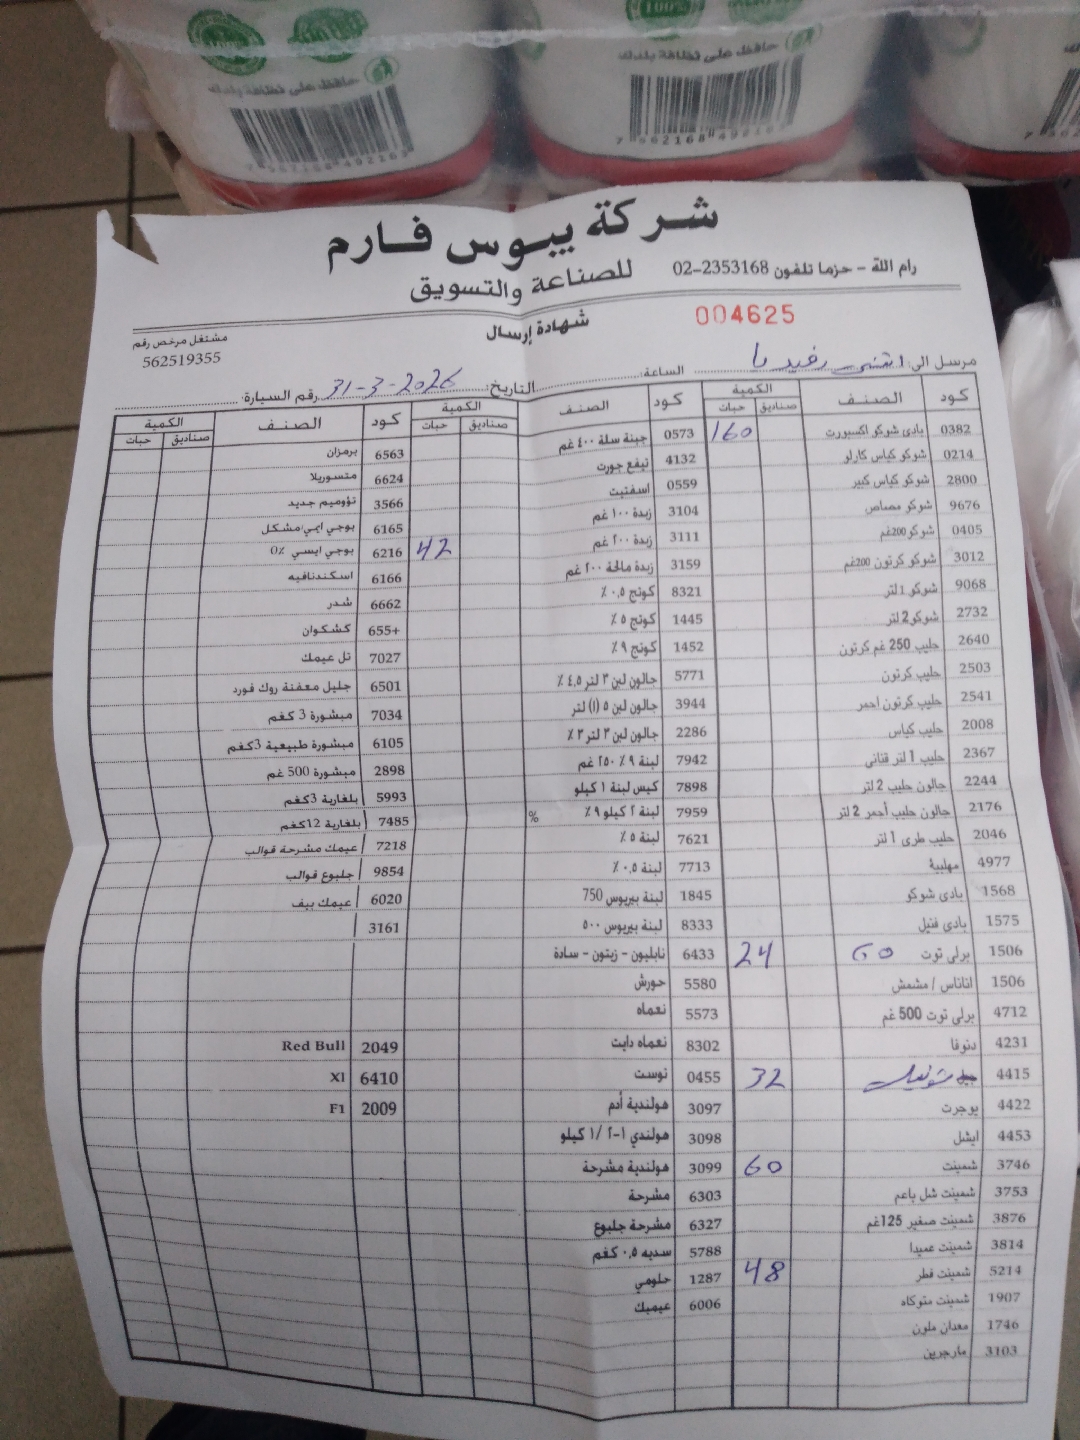 حافظ على نظافة بلدك
حافظ على نظافة بلدك
100%
شركة بيوس فارم
للصناعة والتسويق
رام الله - حزما تلفون 02-2353168
شهادة إرسال
004625
مشتغل مرخص رقم
562519355
مرسل الى: رفيديا
الساعة:
التاريخ: 31-3-2026
رقم السيارة:
كود الصنف الكمية صناديق حبات
0382 بادي شوكو اكسبورت 160
0214 شوكو كياس كارلو
2800 شوكو كياس كبير
9676 شوكو مصاص
0405 شوكو 200غم
3012 شوكو كرتون 200غم
9068 شوكو 1 لتر
2732 شوكو 2 لتر
2640 حليب 250 غم كرتون
2503 حليب كرتون
2541 حليب كرتون احمر
2008 حليب كياس
2367 حليب 1 لتر قناني
2244 جالون حليب 2 لتر
2176 جالون حليب أحمر 2 لتر
2046 حليب طري 1 لتر
4977 مهلبية
1568 بادي شوكو
1575 بادي فنيل
1506 برلي توت 60 24
1506 اناناس / مشمش
4712 برلي توت 500 غم
4231 دنوفا
4415 32
4422 يوجرت
4453 ايشل
3746 شمينت 60
3753 شمينت شل باعم
3876 شمينت صغير 125غم
3814 شمينت عميدا
5214 شمينت فطر 48
1907 شمينت متوكاه
1746 معدان ملون
3103 مارجرين
كود الصنف الكمية صناديق حبات
0573 جبنة سلة ٤٠٠ غم
4132 نيفع جورت
0559 اسفتيت
3104 زبدة ١٠٠ غم
3111 زبدة ٢٠٠ غم 42
3159 زبدة مالحة ٢٠٠ غم
8321 كوتج ٠,٥ ٪
1445 كوتج ٥ ٪
1452 كوتج ٩ ٪
5771 جالون لبن ٣ لتر ٤,٥ ٪
3944 جالون لبن ٥ (١) لتر
2286 جالون لبن ٣ لتر ٣ ٪
7942 لبنة ٩ ٪ ٢٥٠ غم
7898 كيس لبنة ١ كيلو
7959 لبنة ٢ كيلو ٩ ٪ %
7621 لبنة ٥ ٪
7713 لبنة ٠,٥ ٪
1845 لبنة بيريوس 750
8333 لبنة بيريوس ٥٠٠
6433 نابليون - زيتون - سادة
5580 حورش
5573 نعماه
8302 نعماه دايت
0455 توست
3097 هولندية أدم
3098 هولندي ١-٢ /١ كيلو
3099 هولندية مشرحة
6303 مشرحة
6327 مشرحة جلبوع
5788 سدبه ٠,٥ كغم
1287 حلومي
6006 عيميك
كود الصنف الكمية صناديق حبات
6563 برمزان
6624 متسوريلا
3566 تؤوميم جديد
6165 يوجي ايمي/مشكل
6216 يوجي ايسي 0٪
6166 اسكندنافيه
6662 شدر
655+ كشكوان
7027 تل عيمك
6501 جليل معفنة روك فورد
7034 مبشورة 3 كغم
6105 مبشورة طبيعية 3كغم
2898 مبشورة 500 غم
5993 بلغارية 3كغم
7485 بلغارية 12كغم
7218 عيمك مشرحة قوالب
9854 جلبوع قوالب
6020 عيمك بيف
3161
2049 Red Bull
6410 Xl
2009 F1